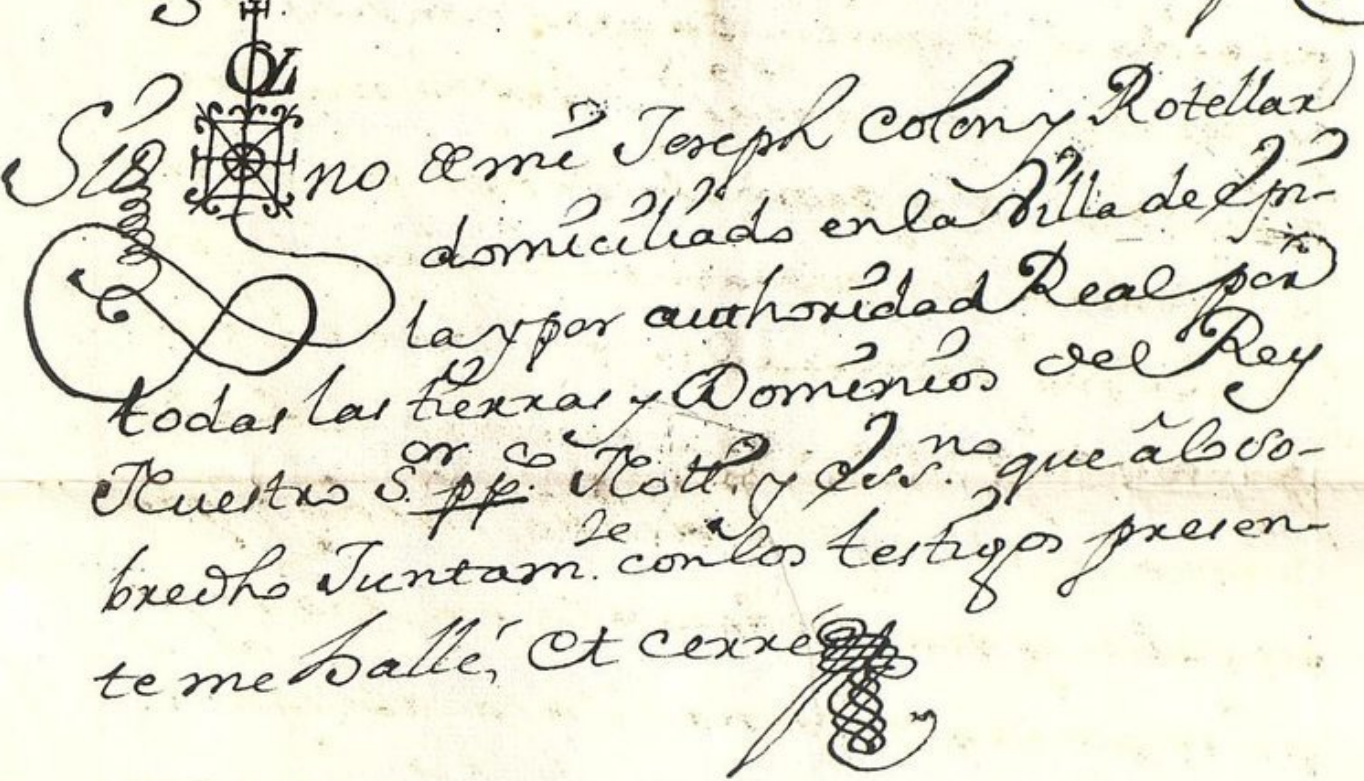 OL
Sig no de mi Joseph Colom y Rotellar
domiciliado en la Villa de Ygua-
la y por authoridad Real por
todas las tierras y Dominios del Rey
Nuestro S.or pp.co Nott. y Ess.no que â lo so-
bredho Juntam.te con los testigos presen-
te me hallé, et cerré